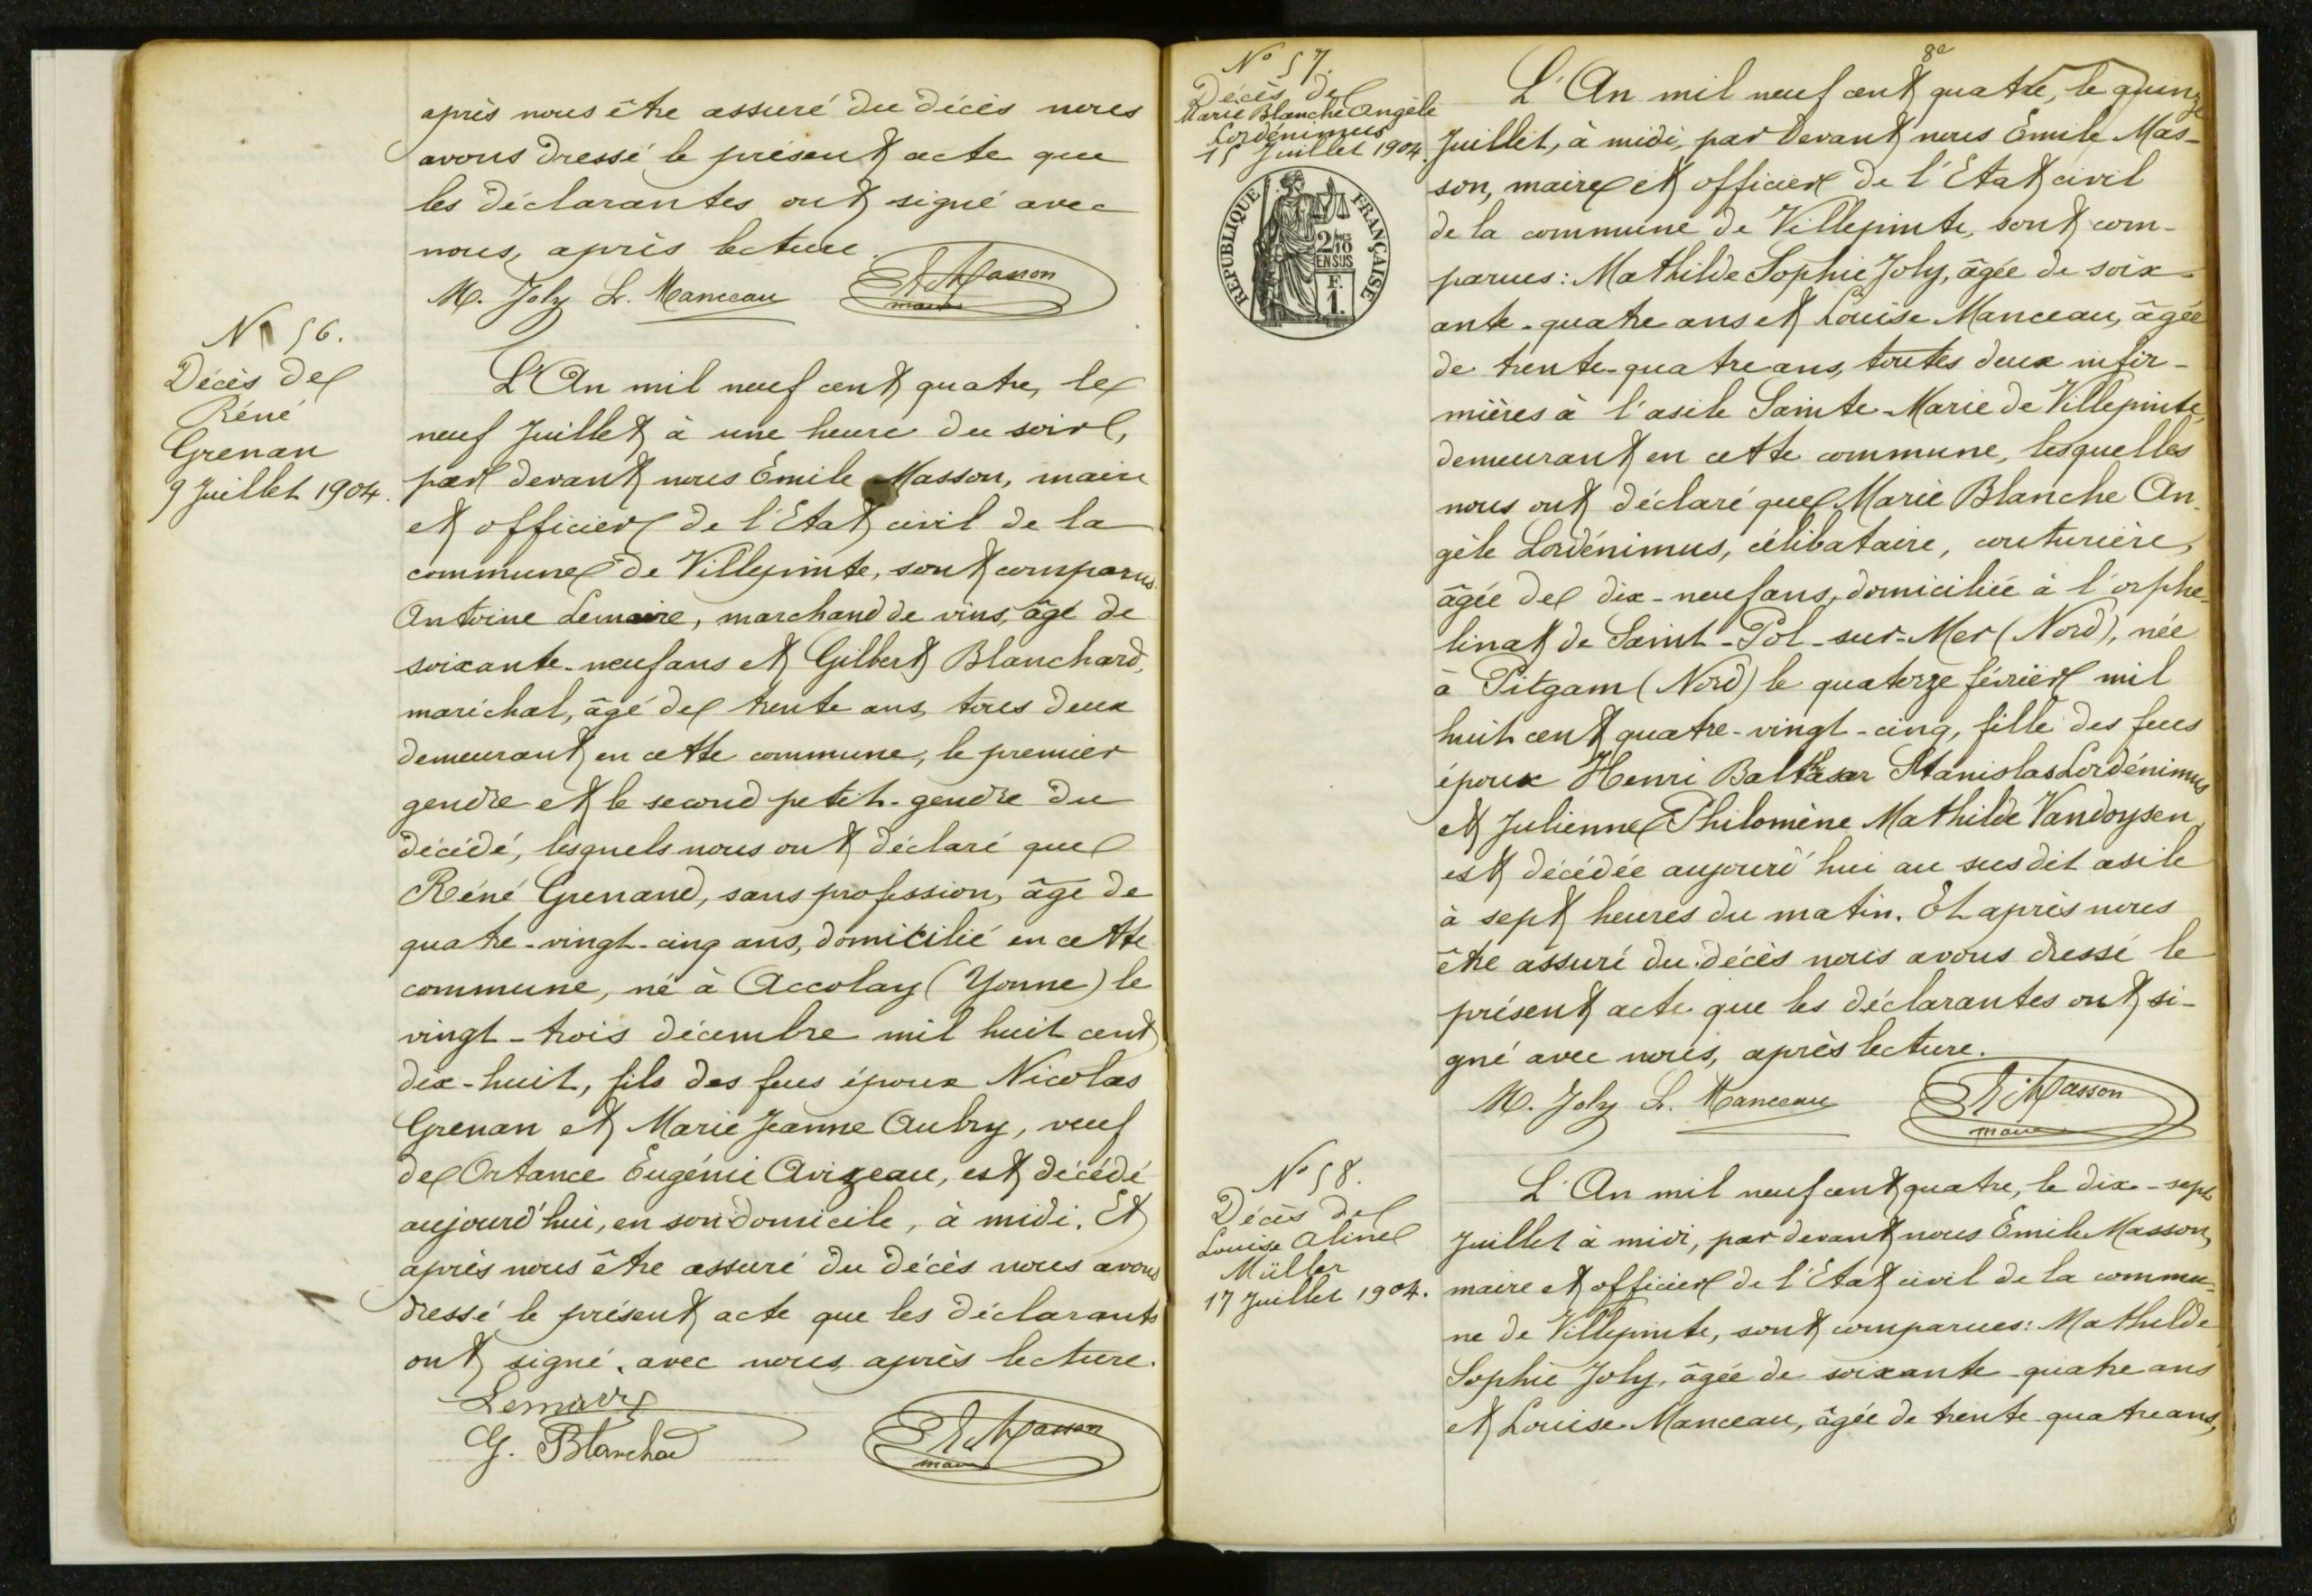 après nous être assuré du décès nous
avons dressé le présent acte que
les déclarantes ont signé avec
nous, après lecture.
M. Joly L. Manceau E. Masson
maire
N° 56.
Décès de
Réné
Grenan
9 Juillet 1904.
L'An mil neuf cent quatre, le
neuf Juillet à une heure du soir,
par devant nous Émile Masson, maire
et officier de l'Etat civil de la
commune de Villepinte, sont comparus
Antoine Lemaire, marchand de vins, âgé de
soixante-neuf ans et Gilbert Blanchard,
maréchal, âgé de trente ans, tous deux
demeurant en cette commune, le premier
gendre et le second petit-gendre du
décédé, lesquels nous ont déclaré que
Réné Grenand, sans profession, âgé de
quatre-vingt-cinq ans, domicilié en cette
commune, né à Accolay (Yonne) le
vingt-trois décembre mil huit cent
dix-huit, fils des feus époux Nicolas
Grenan et Marie Jeanne Aubry, veuf
de Ortance Eugénie Avizeau, est décédé
aujourd'hui, en son domicile, à midi. Et
après nous être assuré du décès nous avons
dressé le présent acte que les déclarants
ont signé, avec nous, après lecture.
Lemaire
G. Blanchard E. Masson
maire
8e
N° 57.
Décès de
Marie Blanche Angèle
Lordénimus
15 Juillet 1904.
RÉPUBLIQUE FRANÇAISE
2/10
EN SUS
F.
1.
L'An mil neuf cent quatre, le quinze
Juillet, à midi, par devant nous Émile Mas-
son, maire et officier de l'Etat civil
de la commune de Villepinte, sont com-
parues: Mathilde Sophie Joly, âgée de soix-
ante-quatre ans et Louise Manceau, âgée
de trente-quatre ans, toutes deux infir-
mières à l'asile Sainte-Marie de Villepinte,
demeurant en cette commune, lesquelles
nous ont déclaré que Marie Blanche An-
gèle Lordénimus, célibataire, couturière,
âgée de dix-neuf ans, domiciliée à l'orphe-
linat de Saint-Pol-sur-Mer (Nord), née
à Pitgam (Nord) le quatorze février mil
huit cent quatre-vingt-cinq, fille des feus
époux Henri Balthasar Stanislas Lordénimus
et Julienne Philomène Mathilde Vandoysen,
est décédée aujourd'hui au susdit asile
à sept heures du matin. Et après nous
être assuré du décès nous avons dressé le
présent acte que les déclarantes ont si-
gné avec nous, après lecture.
M. Joly L. Manceau E. Masson
maire
N° 58.
Décès de
Louise Aline
Müller
17 Juillet 1904.
L'An mil neuf cent quatre, le dix-sept
Juillet à midi, par devant nous Émile Masson,
maire et officier de l'Etat civil de la commu-
ne de Villepinte, sont comparues: Mathilde
Sophie Joly, âgée de soixante-quatre ans
et Louise Manceau, âgée de trente-quatre ans,